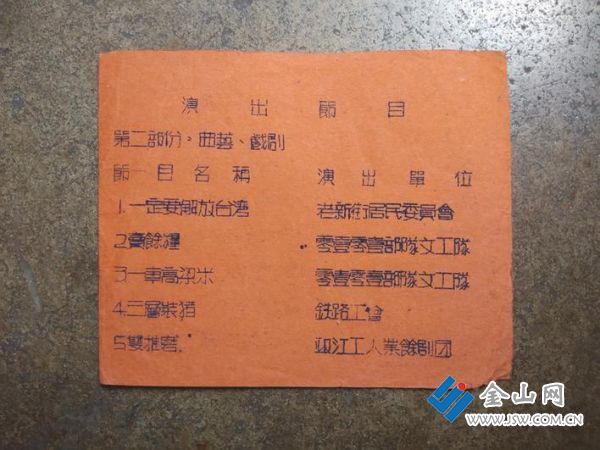 演出節目
第二部份。曲藝、戲劇
節目名稱 演出單位
1.一定要解放台湾 老新街居民委員會
2.賣餘糧 零壹零壹部隊文工隊
3.一車高梁米 零壹零壹部隊文工隊
4.三層裝 鉄路工會
5.雙推磨. 江工人業餘劇团
金山网
WWW.JSW.COM.CN